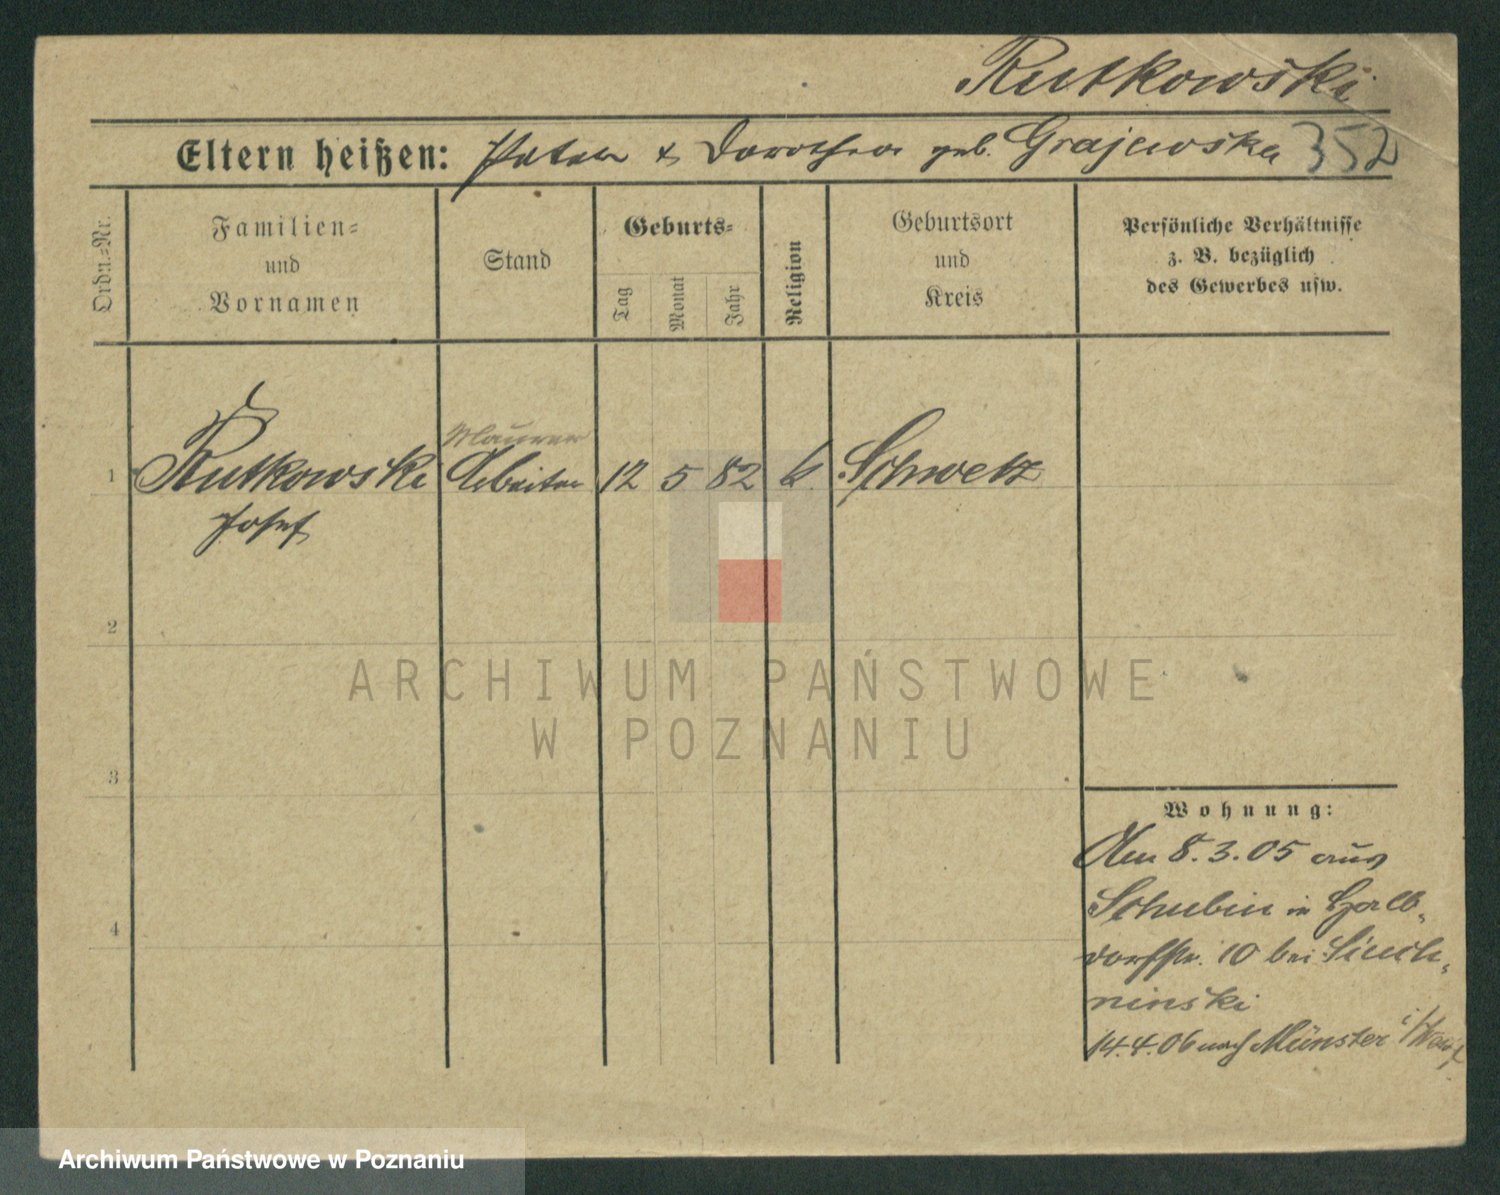 Rutkowski
Eltern heißen: Peter & Dorothea geb. Grajewska 352
Ordn.=Nr.
Familien=
und
Vornamen
Stand
Geburts=
Tag
Monat
Jahr
Religion
Geburtsort
und
Kreis
Persönliche Verhältnisse
z. B. bezüglich
des Gewerbes usw.
Maurer
1 Rutkowski Arbeiter 12 5 82 k. Schwetz
Josef
2
3
4
Wohnung:
Am 8.3.05 aus
Schubin in Halb-
dorfstr. 10 bei
ninski
14.4.06 nach Münster i/Westf
ARCHIWUM PAŃSTWOWE
W POZNANIU
Archiwum Państwowe w Poznaniu